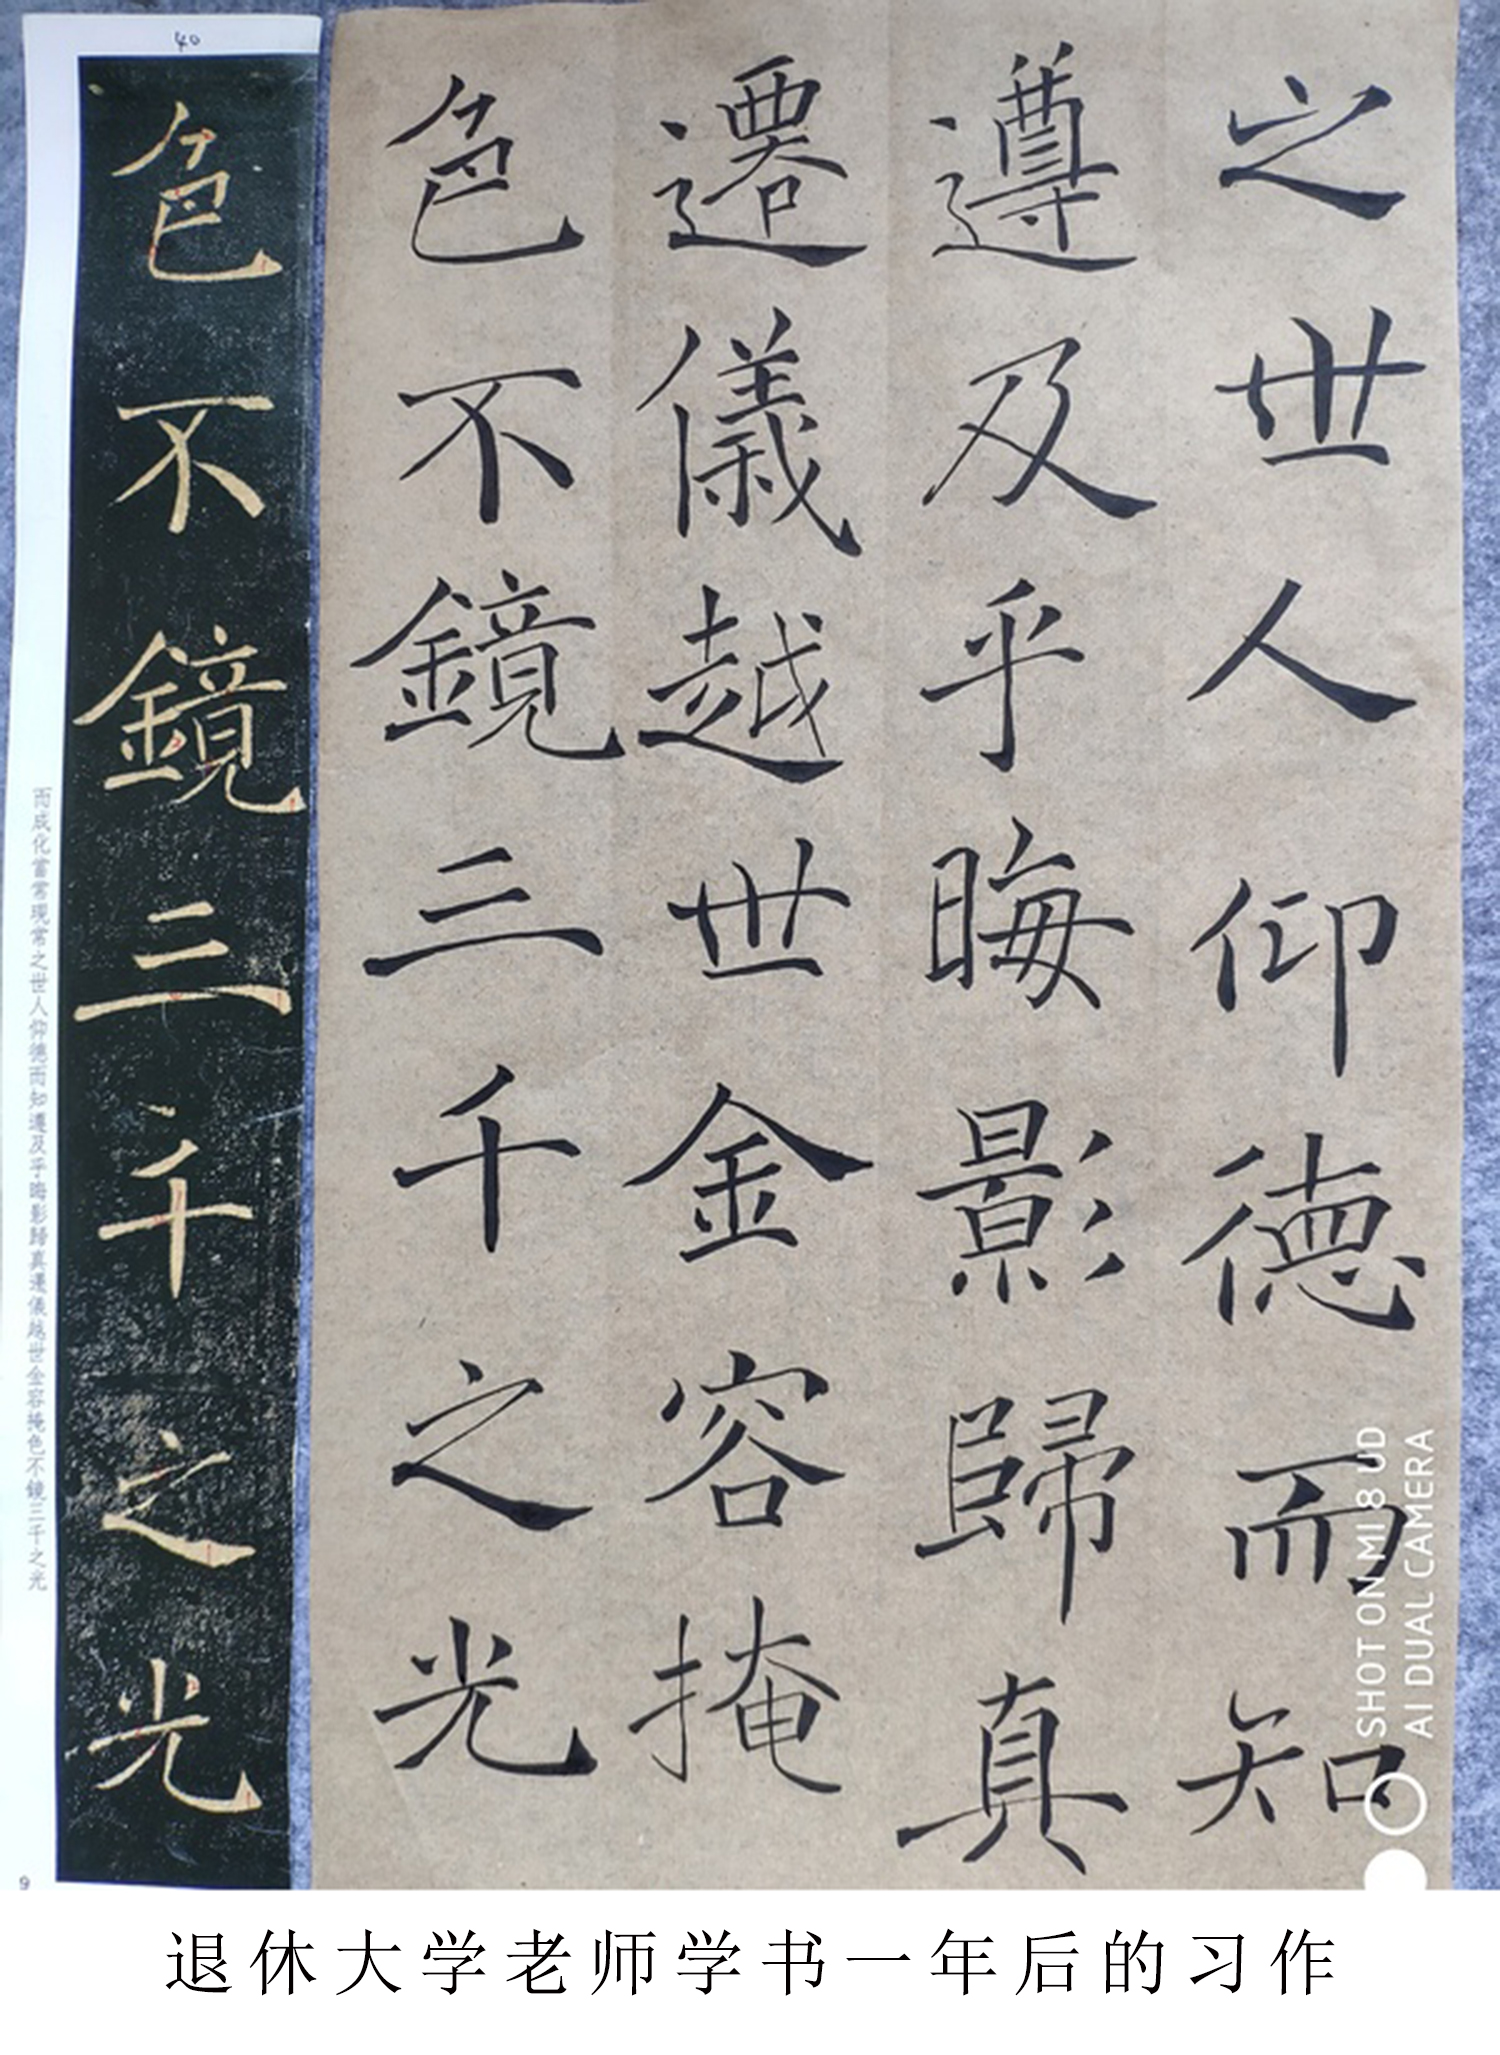 之世人仰德而知
遵及乎晦影歸真
遷儀越世金容掩
色不鏡三千之光
40
色不鏡三千之光
而成化當常現常之世人仰德而知遵及乎晦影歸真遷儀越世金容掩色不鏡三千之光
9
SHOT ON MI 8 UD
AI DUAL CAMERA
退休大学老师学书一年后的习作